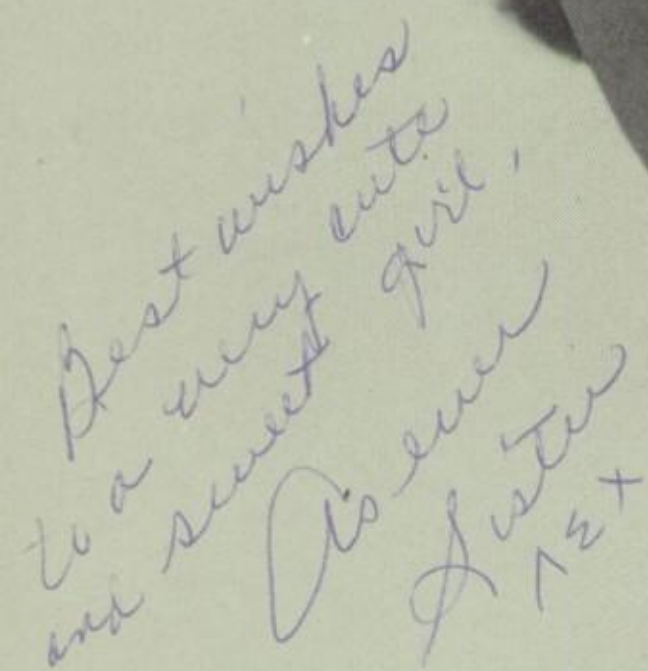 Best wishes
to a very cute
and sweet girl.
As ever
Sister
ΛΣΧ